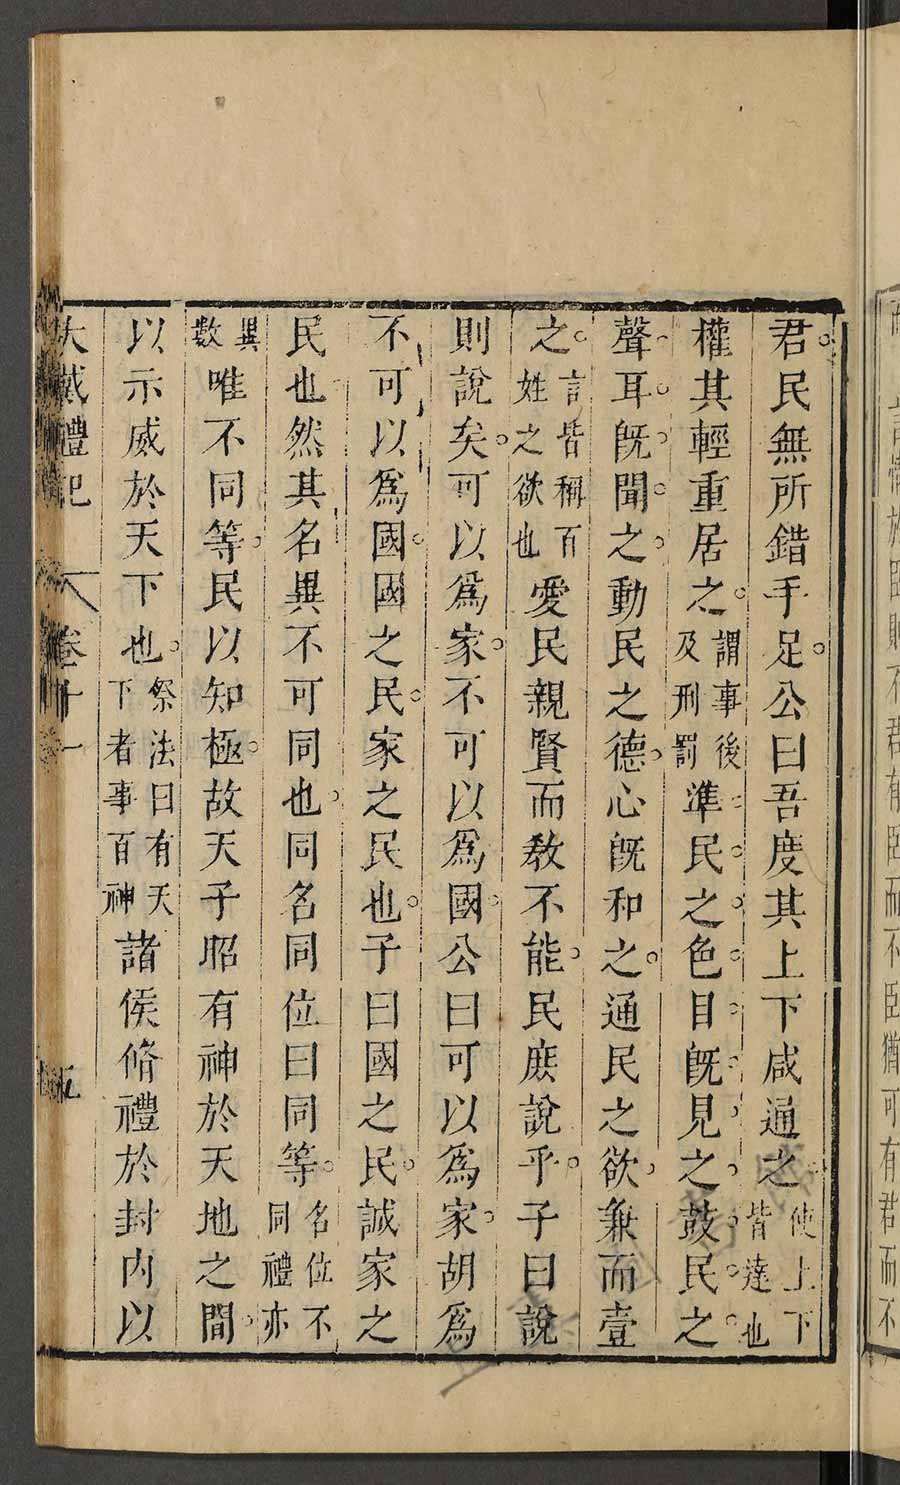 君民無所錯手足公曰吾度其上下咸通之使上下皆達也
權其輕重居之謂事後及刑罰準民之色目旣見之鼓民之
聲耳旣聞之動民之德心旣和之通民之欲兼而壹
之言皆稱百姓之欲也愛民親賢而敎不能民庶說乎子曰說
則說矣可以爲家不可以爲國公曰可以爲家胡爲
不可以爲國國之民家之民也子曰國之民誠家之
民也然其名異不可同也同名同位曰同等名位不同禮亦
異數唯不同等民以知極故天子昭有神於天地之間
以示威於天下也祭法曰有天下者事百神諸侯脩禮於封內以
大戴禮記 卷十一 五